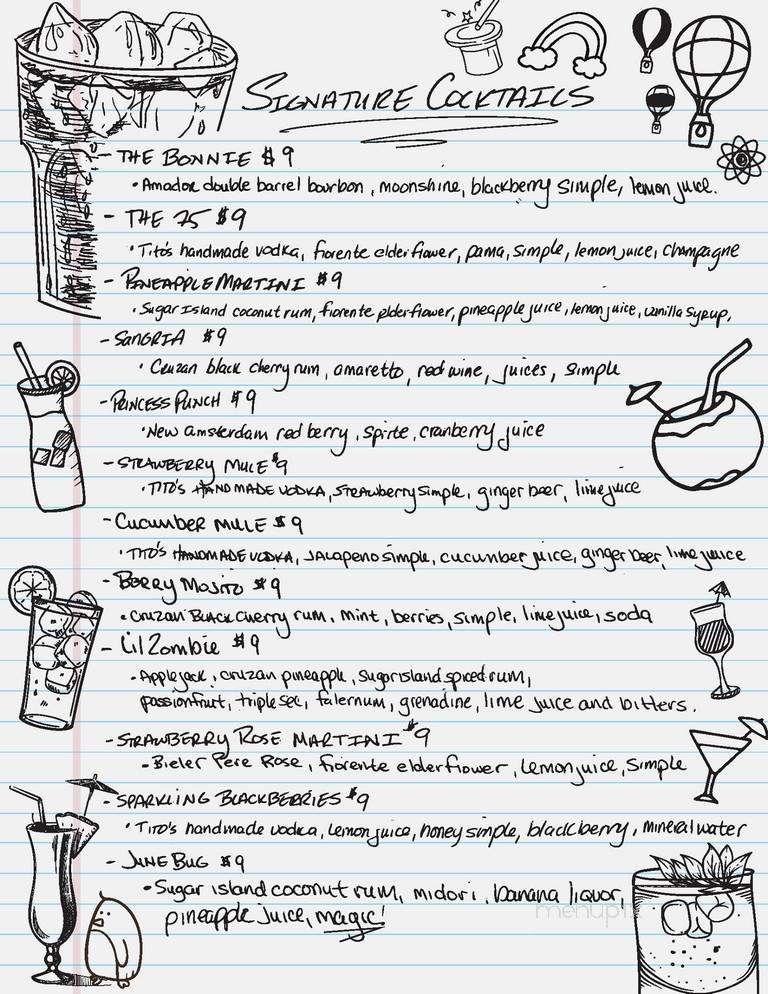 SIGNATURE COCKTAILS
- THE BONNIE $9
• Amador double barrel bourbon, moonshine, blackberry simple, lemon juice.
- THE 75 $9
• Tito's handmade vodka, fiorente elderflower, pama, simple, lemon juice, champagne
- PINEAPPLE MARTINI $9
• Sugar Island coconut rum, fiorente elderflower, pineapple juice, lemon juice, vanilla syrup.
- SANGRIA $9
• Cruzan black cherry rum, amaretto, red wine, juices, simple
- PRINCESS PUNCH $9
• New amsterdam red berry, spirte, cranberry juice
- STRAWBERRY MULE $9
• TITO'S HANDMADE VODKA, Strawberry simple, ginger beer, lime juice
- Cucumber MULE $9
• TITO'S HANDMADE VODKA, JALAPENO simple, cucumber juice, ginger beer, lime juice
- BERRY MOJITO $9
• Cruzan Black Cherry rum, mint, berries, simple, lime juice, soda
- Lil Zombie $9
• Applejack, cruzan pineapple, Sugar island spiced rum,
passionfruit, triple sec, falernum, grenadine, lime juice and bitters.
- STRAWBERRY ROSE MARTINI $9
- Bieler Pere Rose, fiorente elderflower, lemon juice, simple
- SPARKLING BLACKBERRIES $9
• Tito's handmade vodka, lemon juice, honey simple, blackberry, mineral water
- JUNE BUG $9
• Sugar island coconut rum, midori, banana liquor,
pineapple juice, magic!